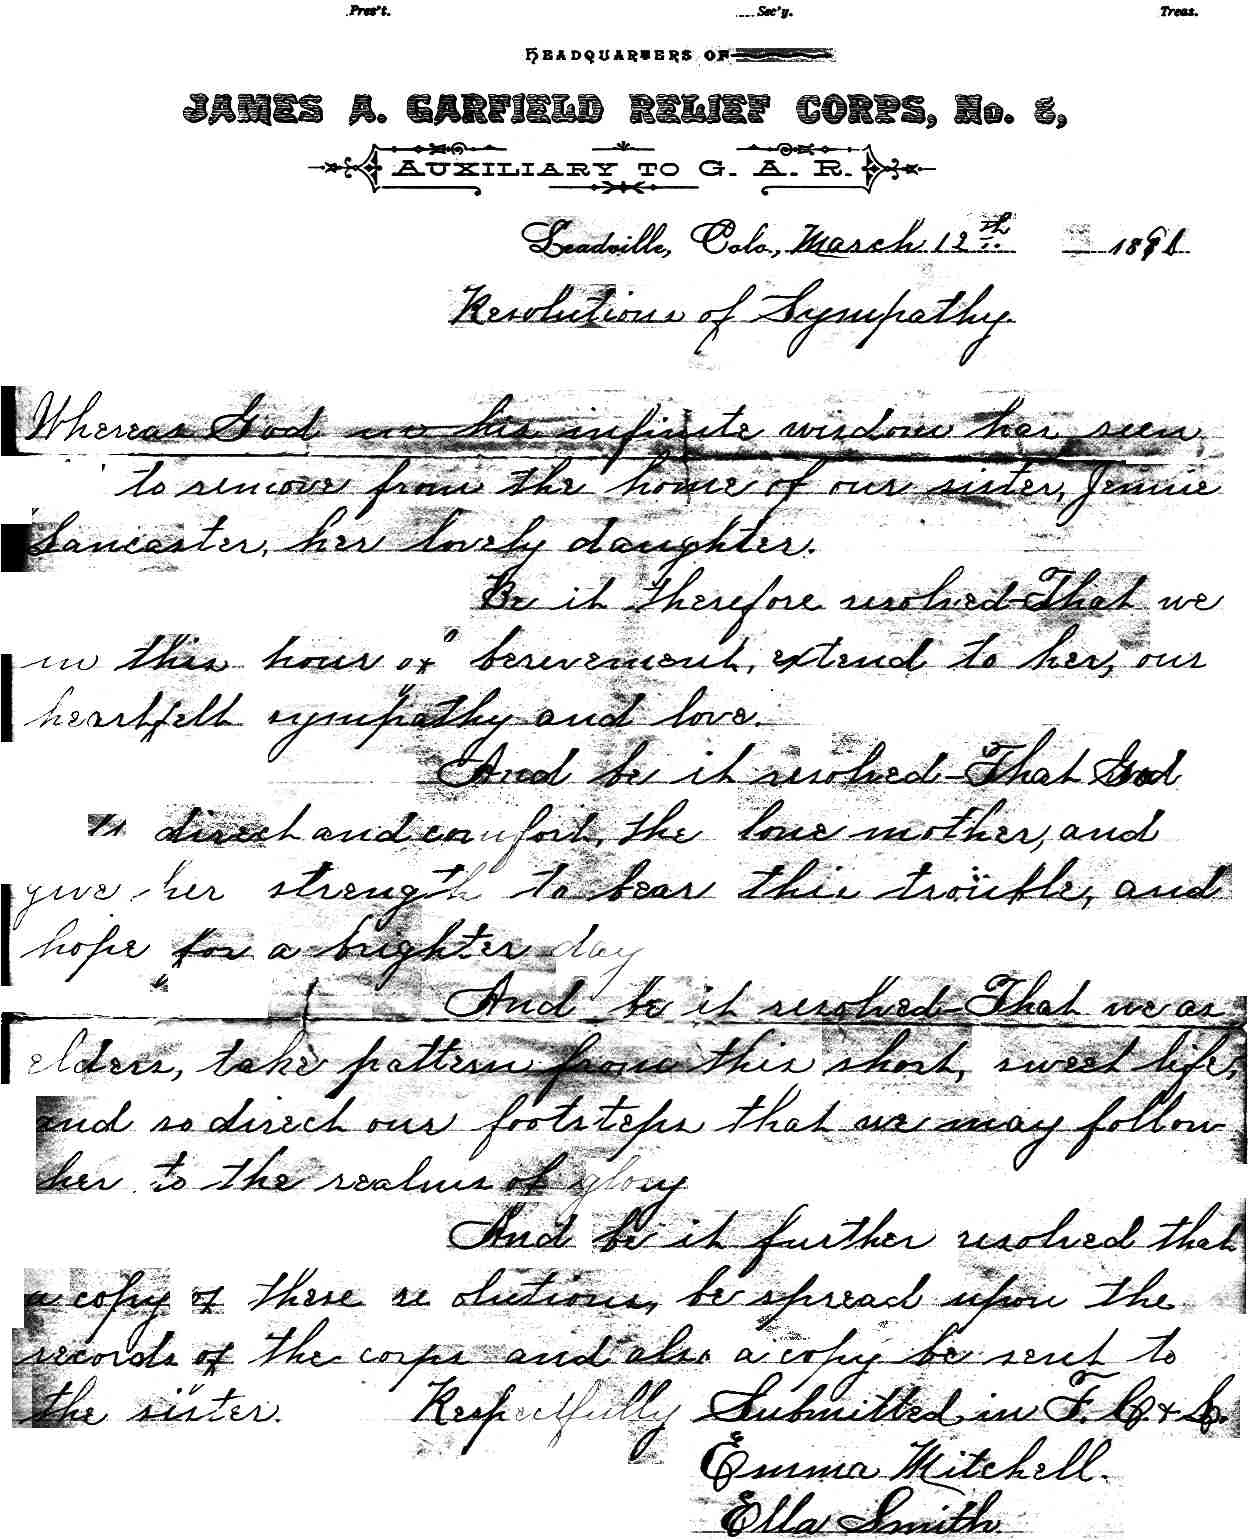 Pres't. Sec'y. Treas.
HEADQUARTERS OF
JAMES A. GARFIELD RELIEF CORPS, No. 8,
AUXILIARY TO G. A. R.
Leadville, Colo., March 12th 1891
Resolutions of Sympathy.
Whereas God in his infinite wisdom has seen
to remove from the home of our sister, Jennie
Lancaster, her lovely daughter.
Be it therefore resolved-That we
in this hour of berevement, extend to her, our
heartfelt sympathy and love.
And be it resolved-That God
direct and comfort, the lone mother, and
give her strength to bear this trouble, and
hope for a brighter day
And be it resolved-That we as
elders, take pattern from this short, sweet life,
and so direct our footsteps that we may follow
her to the realms of glory
And be it further resolved that
a copy of these re olutions, be spread upon the
records of the corps and also a copy be sent to
the sister. Respectfully Submitted in F. C. & L.
Emma Mitchell.
Ella Smith.